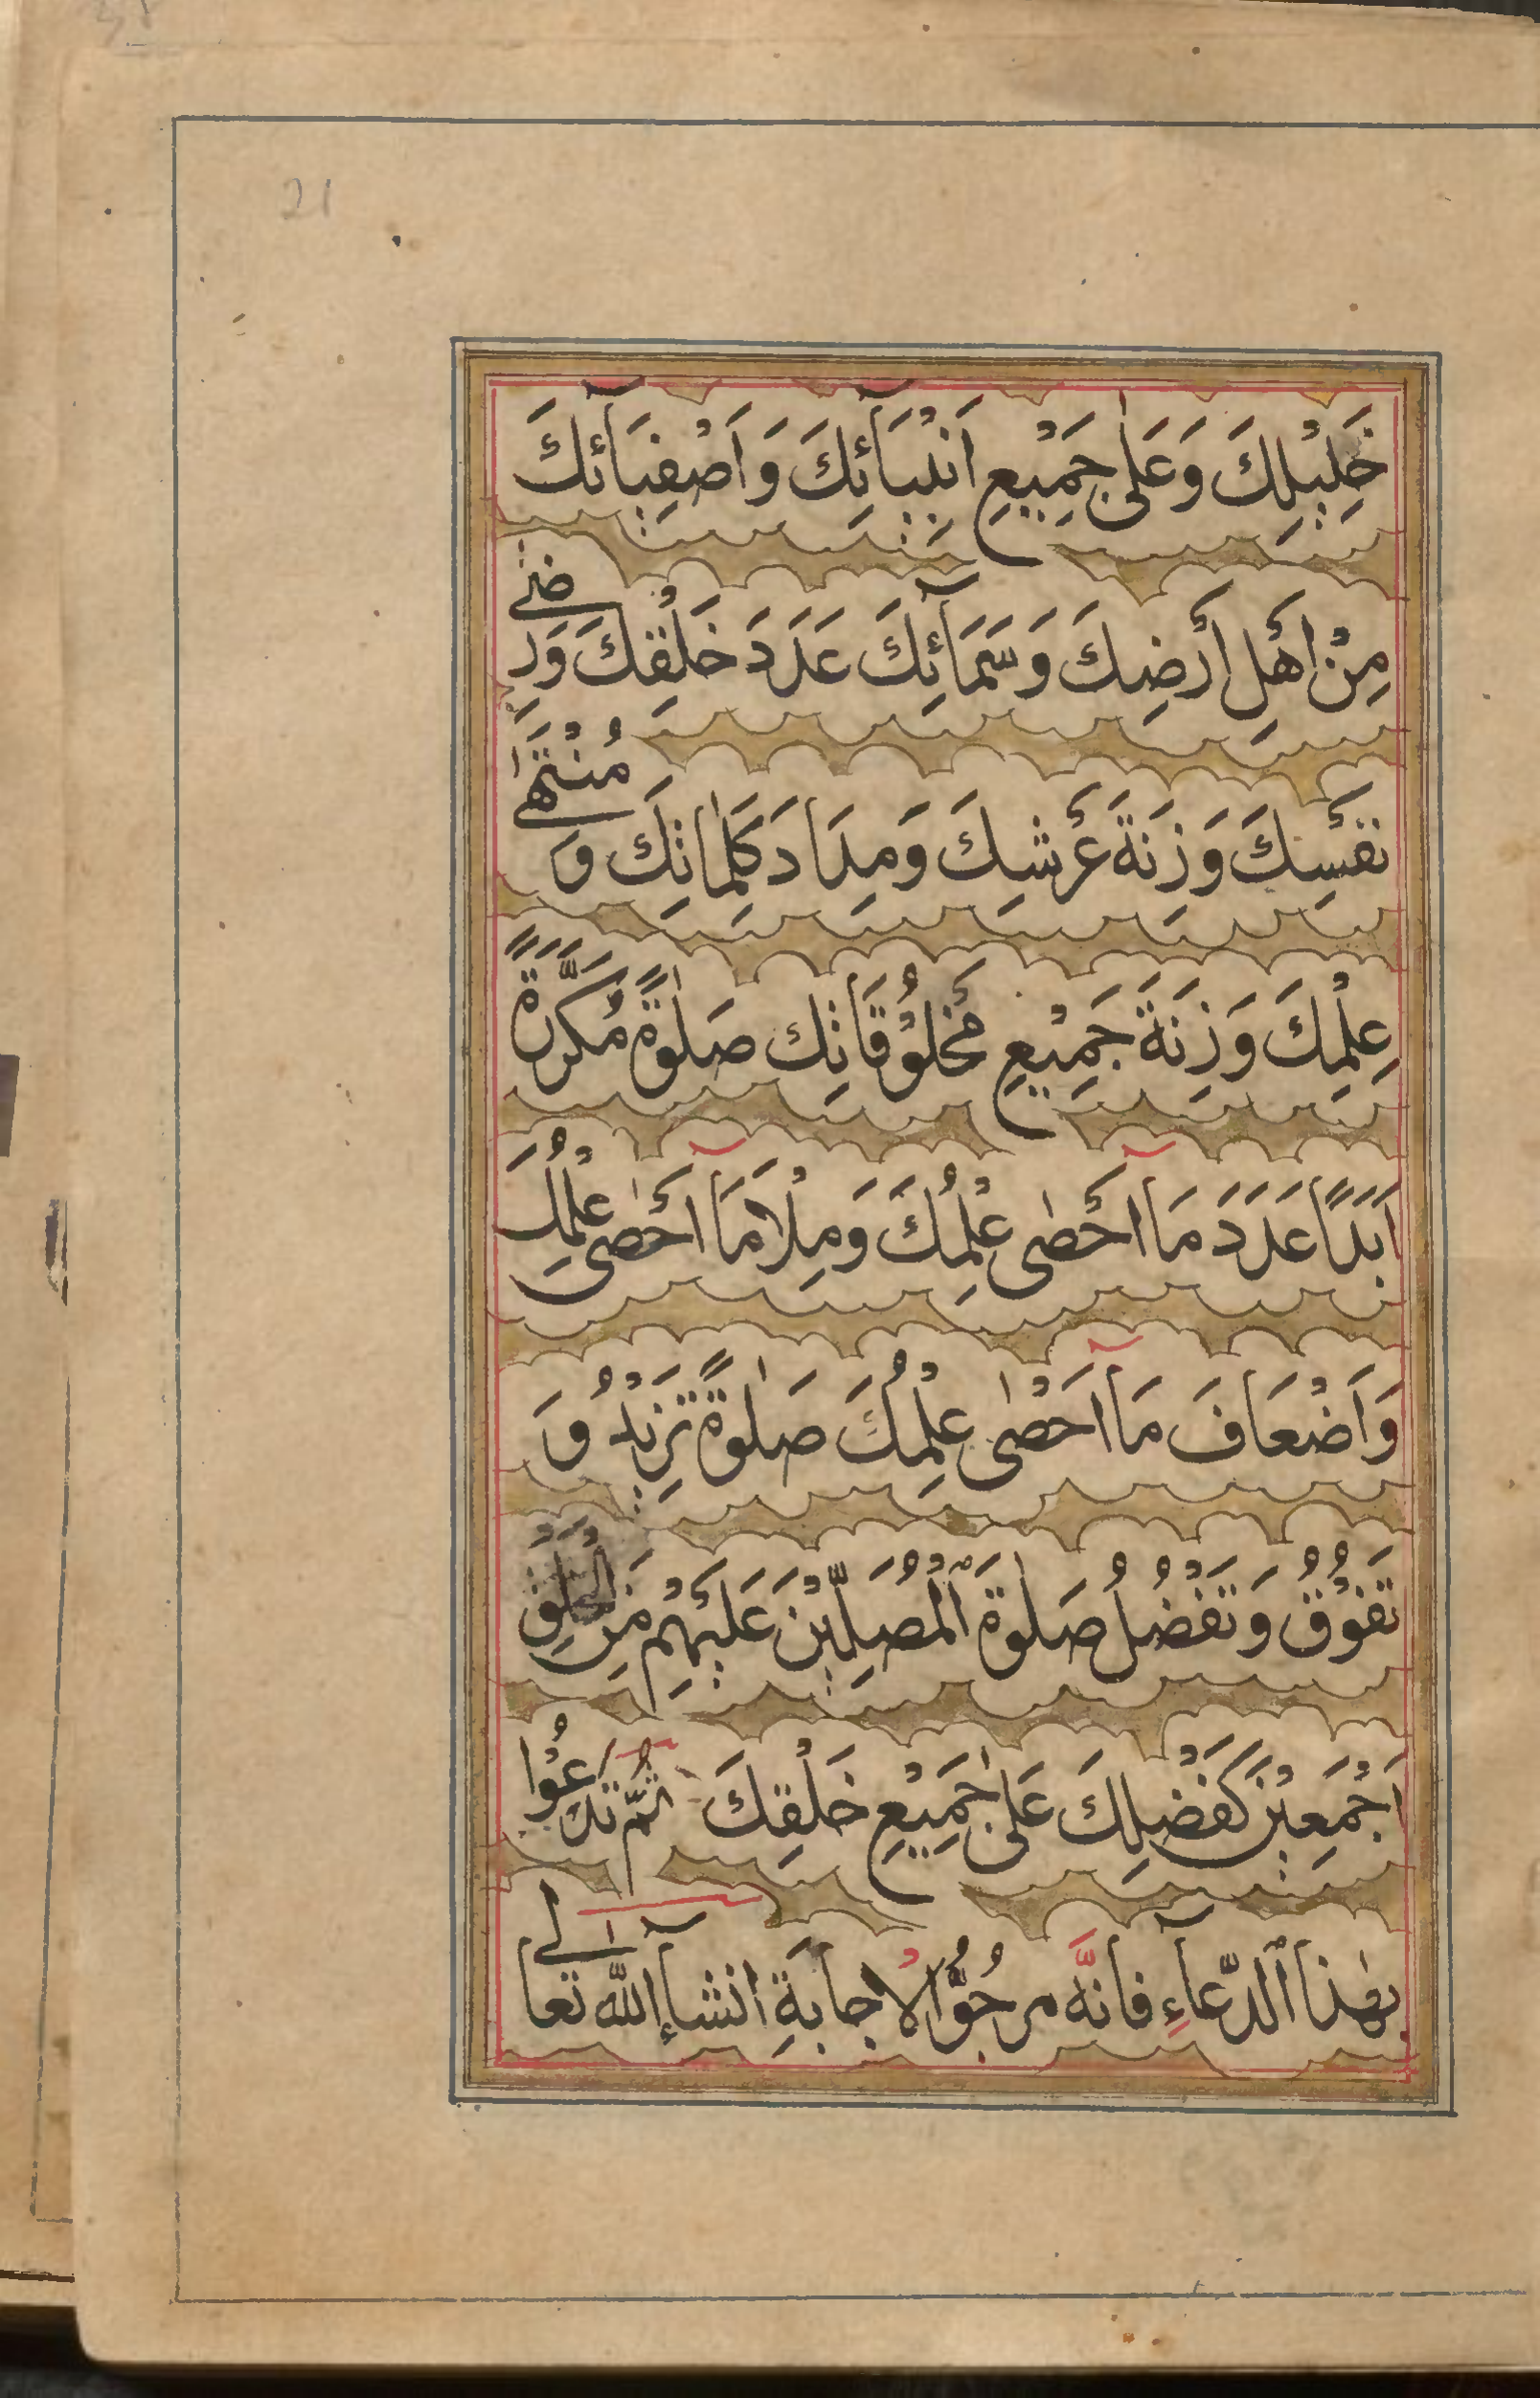 21
خَلِيْلِكَ وَعَلٰى جَمِيْعِ اَنْبِيَآئِكَ وَاَصْفِيَآئِكَ
مِنْ اَهْلِ اَرْضِكَ وَسَمَآئِكَ عَدَدَ خَلْقِكَ وَرِضٰى
نَفْسِكَ وَزِنَةَ عَرْشِكَ وَمِدَادَ كَلِمَاتِكَ وَمُنْتَهٰى
عِلْمِكَ وَزِنَةَ جَمِيْعِ مَخْلُوْقَاتِكَ صَلٰوةً مُكَرَّرَةً
اَبَدًا عَدَدَ مَآ اَحْصٰى عِلْمُكَ وَمِلْأَ مَآ اَحْصٰى عِلْمُكَ
وَاَضْعَافَ مَآ اَحْصٰى عِلْمُكَ صَلٰوةً تَزِيْدُ وَ
تَفُوْقُ وَتَفْضُلُ صَلٰوةَ الْمُصَلِّيْنَ عَلَيْهِمْ مِنَ الْخَلْقِ
اَجْمَعِيْنَ كَفَضْلِكَ عَلٰى جَمِيْعِ خَلْقِكَ ثُمَّ تَدْعُوْا
بهٰذا الدُّعآءِ فانَّه مرجُوُّ الاجابةِ انشآءالله تعالى